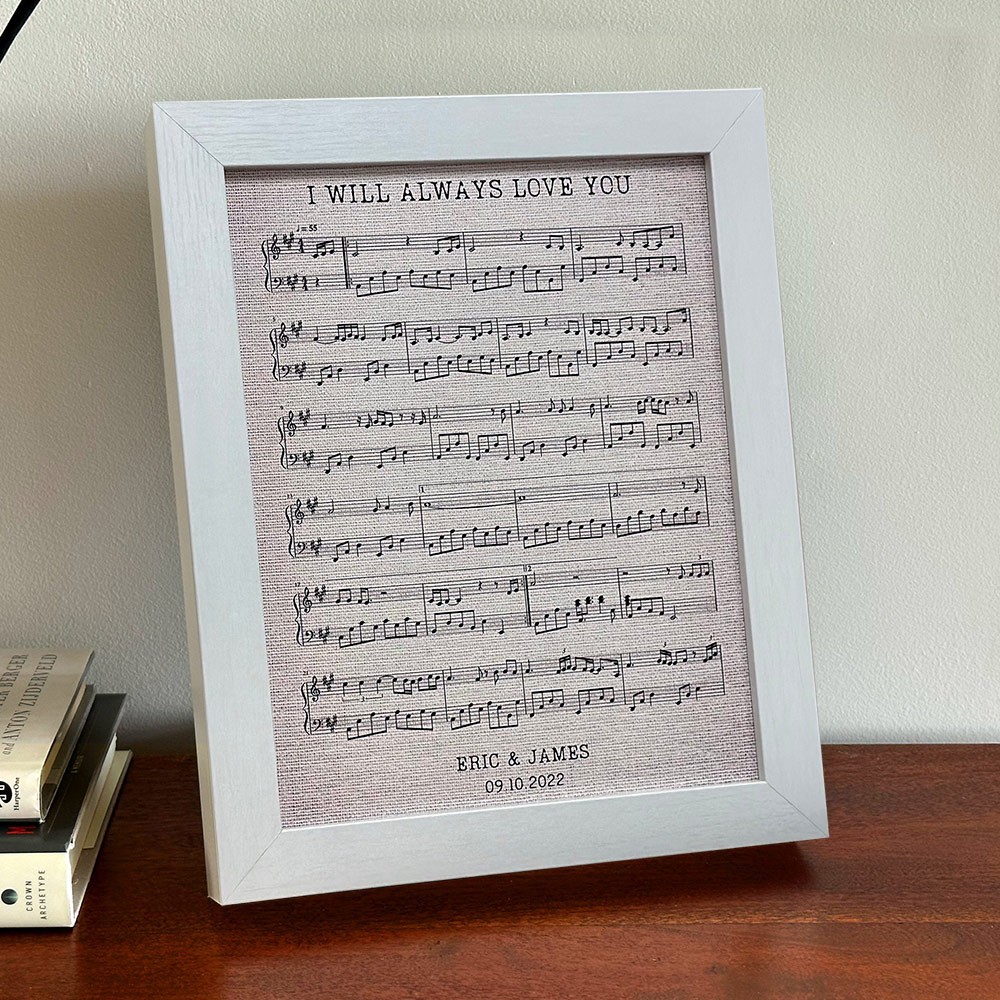 I WILL ALWAYS LOVE YOU
♩ = 55
ERIC & JAMES
09.10.2022
BERGER
and ANTON ZIJDERVELD
HarperOne
CROWN
ARCHETYPE